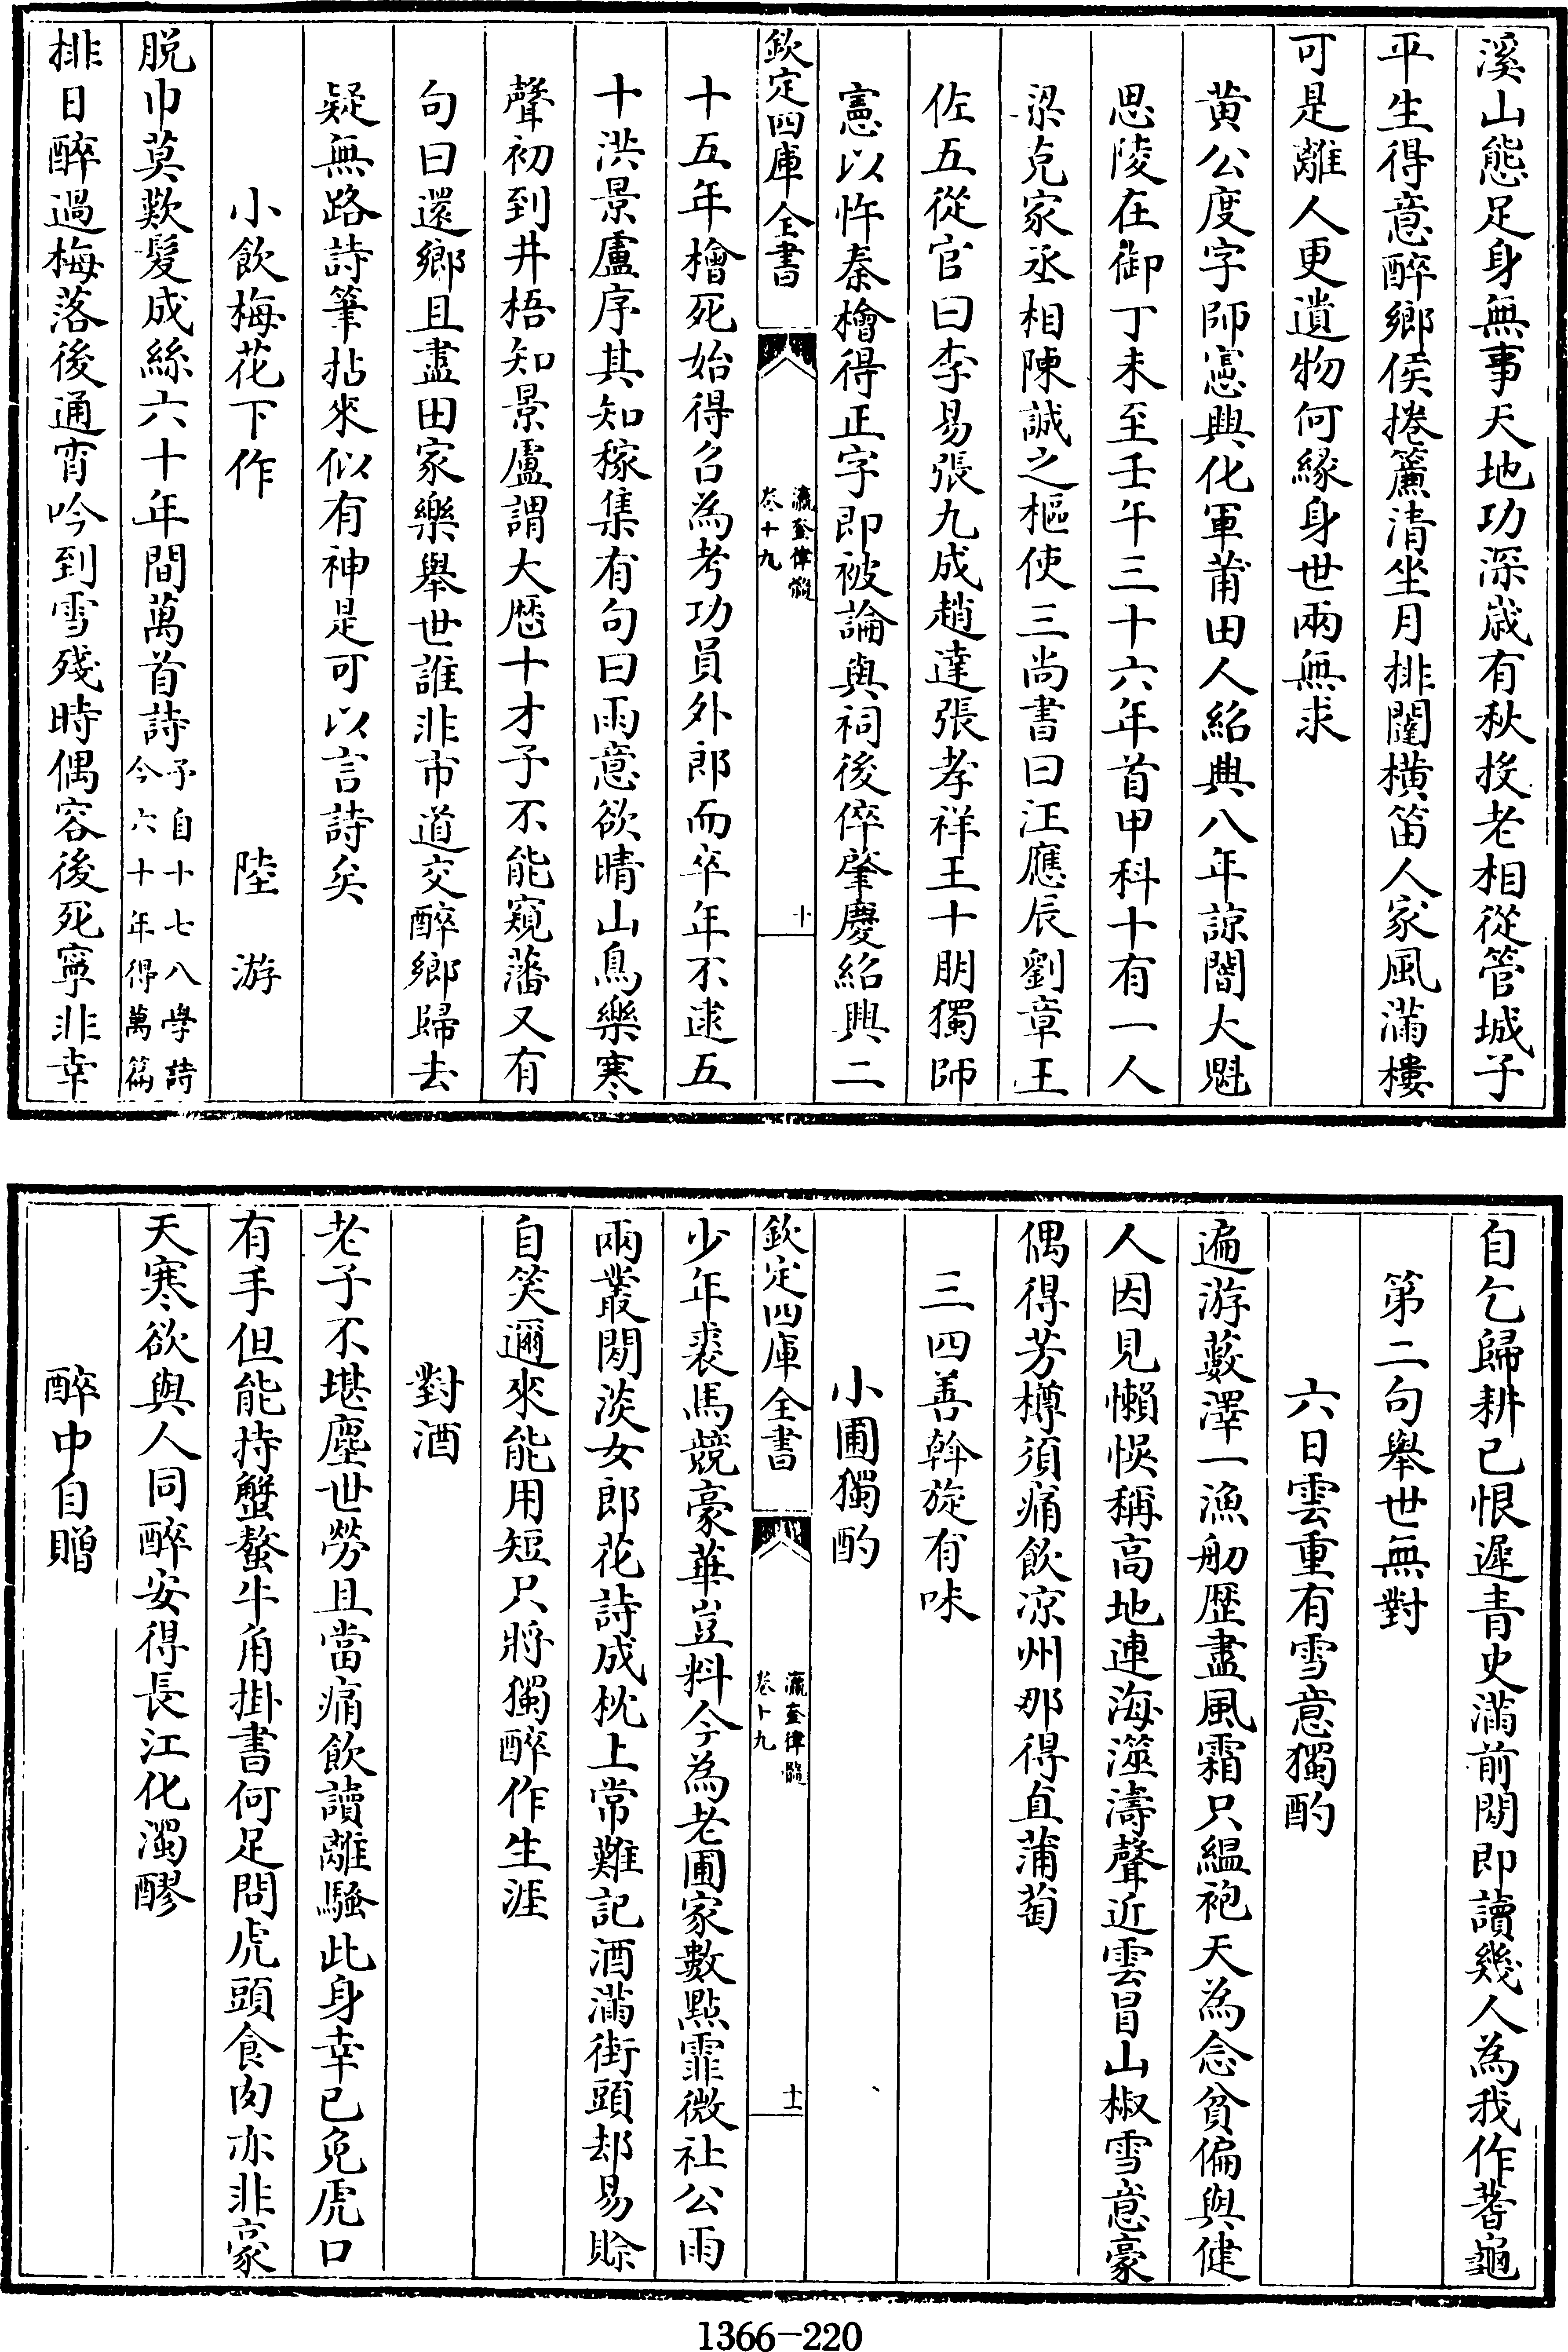 溪山態足身無事天地功深歳有秋投老相從管城子
平生得意醉鄉侯捲簾清坐月排闥横笛人家風滿樓
可是離人更遺物何緣身世兩無求
黄公度字師憲興化軍莆田人紹興八年諒闇大魁
思陵在御丁未至壬午三十六年首甲科十有一人
梁克家丞相陳誠之樞使三尚書曰汪應辰劉章王
佐五從官曰李易張九成趙逵張孝祥王十朋獨師
憲以忤秦檜得正字即被論與祠後倅肇慶紹興二
欽定四庫全書
瀛奎律髓
卷十九
十
十五年檜死始得召為考功員外郎而卒年不逮五
十洪景盧序其知稼集有句曰雨意欲晴山鳥樂寒
聲初到井梧知景盧謂大厯十才子不能窺藩又有
句曰還鄉且盡田家樂舉世誰非市道交醉鄉歸去
疑無路詩筆拈來似有神是可以言詩矣
小飲梅花下作 陸游
脱巾莫歎髮成絲六十年間萬首詩予自十七八學詩
今六十年得萬篇
排日醉過梅落後通宵吟到雪殘時偶容後死寧非幸
自乞歸耕已恨遲青史滿前閒即讀幾人為我作蓍龜
第二句舉世無對
六日雲重有雪意獨酌
遍游藪澤一漁舠歴盡風霜只緼袍天為念貧偏與健
人因見懶悞稱高地連海澨濤聲近雲冒山椒雪意豪
偶得芳樽須痛飲凉州那得直蒲萄
三四善斡旋有味
小圃獨酌
欽定四庫全書
瀛奎律髓
卷十九
十一
少年裘馬競豪華豈料今為老圃家數點霏微社公雨
兩叢閒淡女郎花詩成枕上常難記酒滿街頭却易賒
自笑邇來能用短只將獨醉作生涯
對酒
老子不堪塵世勞且當痛飲讀離騷此身幸已免虎口
有手但能持蟹螯牛角掛書何足問虎頭食肉亦非豪
天寒欲與人同醉安得長江化濁醪
醉中自贈
1366-220